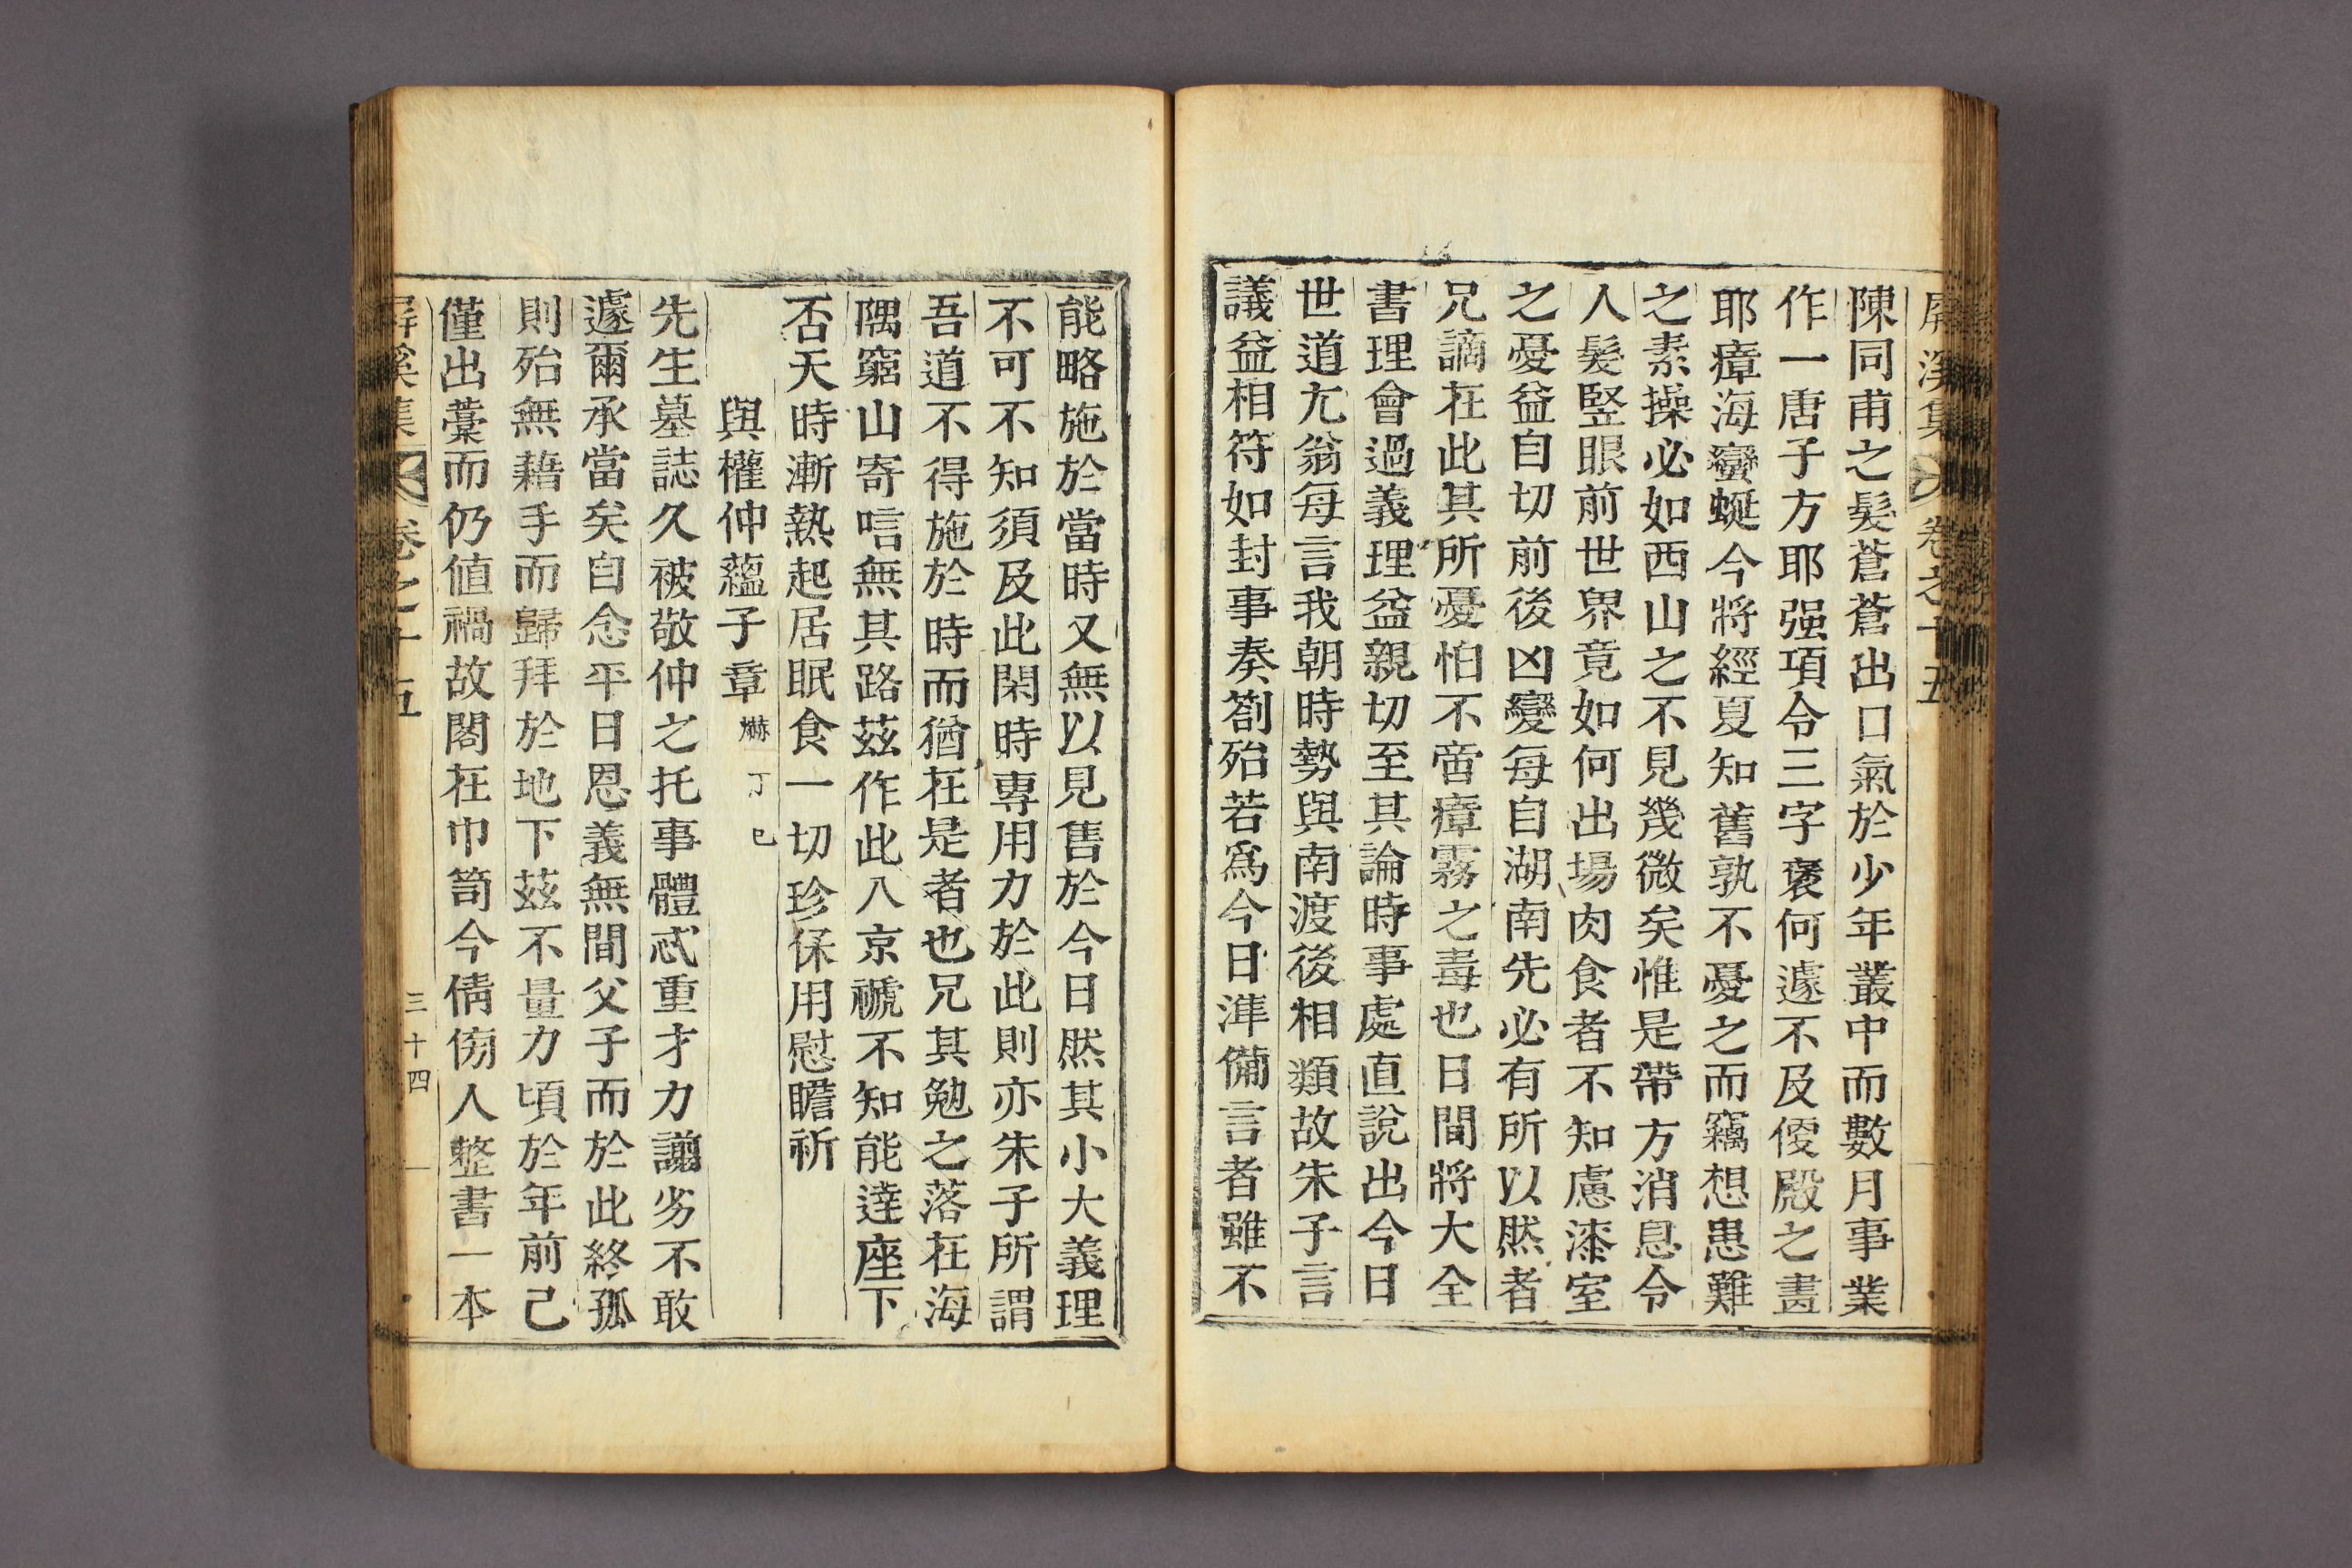 屛溪集 卷之十五
陳同甫之髮蒼蒼出口氣於少年叢中而數月事業
作一唐子方耶强項令三字褒何遽不及便殿之晝
耶瘴海蠻蜒今將經夏知舊孰不憂之而竊想患難
之素操必如西山之不見幾微矣惟是帶方消息令
人髮竪眼前世界竟如何出場肉食者不知慮漆室
之憂益自切前後凶變每自湖南先必有所以然者
兄謫在此其所憂怕不啻瘴霧之毒也日間將大全
書理會過義理益親切至其論時事處直說出今日
世道尤翁每言我朝時勢與南渡後相類故朱子言
議益相符如封事奏箚殆若爲今日準備言者雖不
能略施於當時又無以見售於今日然其小大義理
不可不知須及此閑時專用力於此則亦朱子所謂
吾道不得施於時而猶在是者也兄其勉之落在海
隅窮山寄唁無其路玆作此入京褫不知能達座下
否天時漸熱起居眠食一切珍保用慰瞻祈
與權仲蘊子章爀 丁巳
先生墓誌久被敬仲之托事體忒重才力譾劣不敢
遽爾承當矣自念平日恩義無間父子而於此終孤
則殆無藉手而歸拜於地下玆不量力頃於年前己
僅出藁而仍値禍故閣在巾笥今倩傍人整書一本
屛溪集 卷之十五 三十四